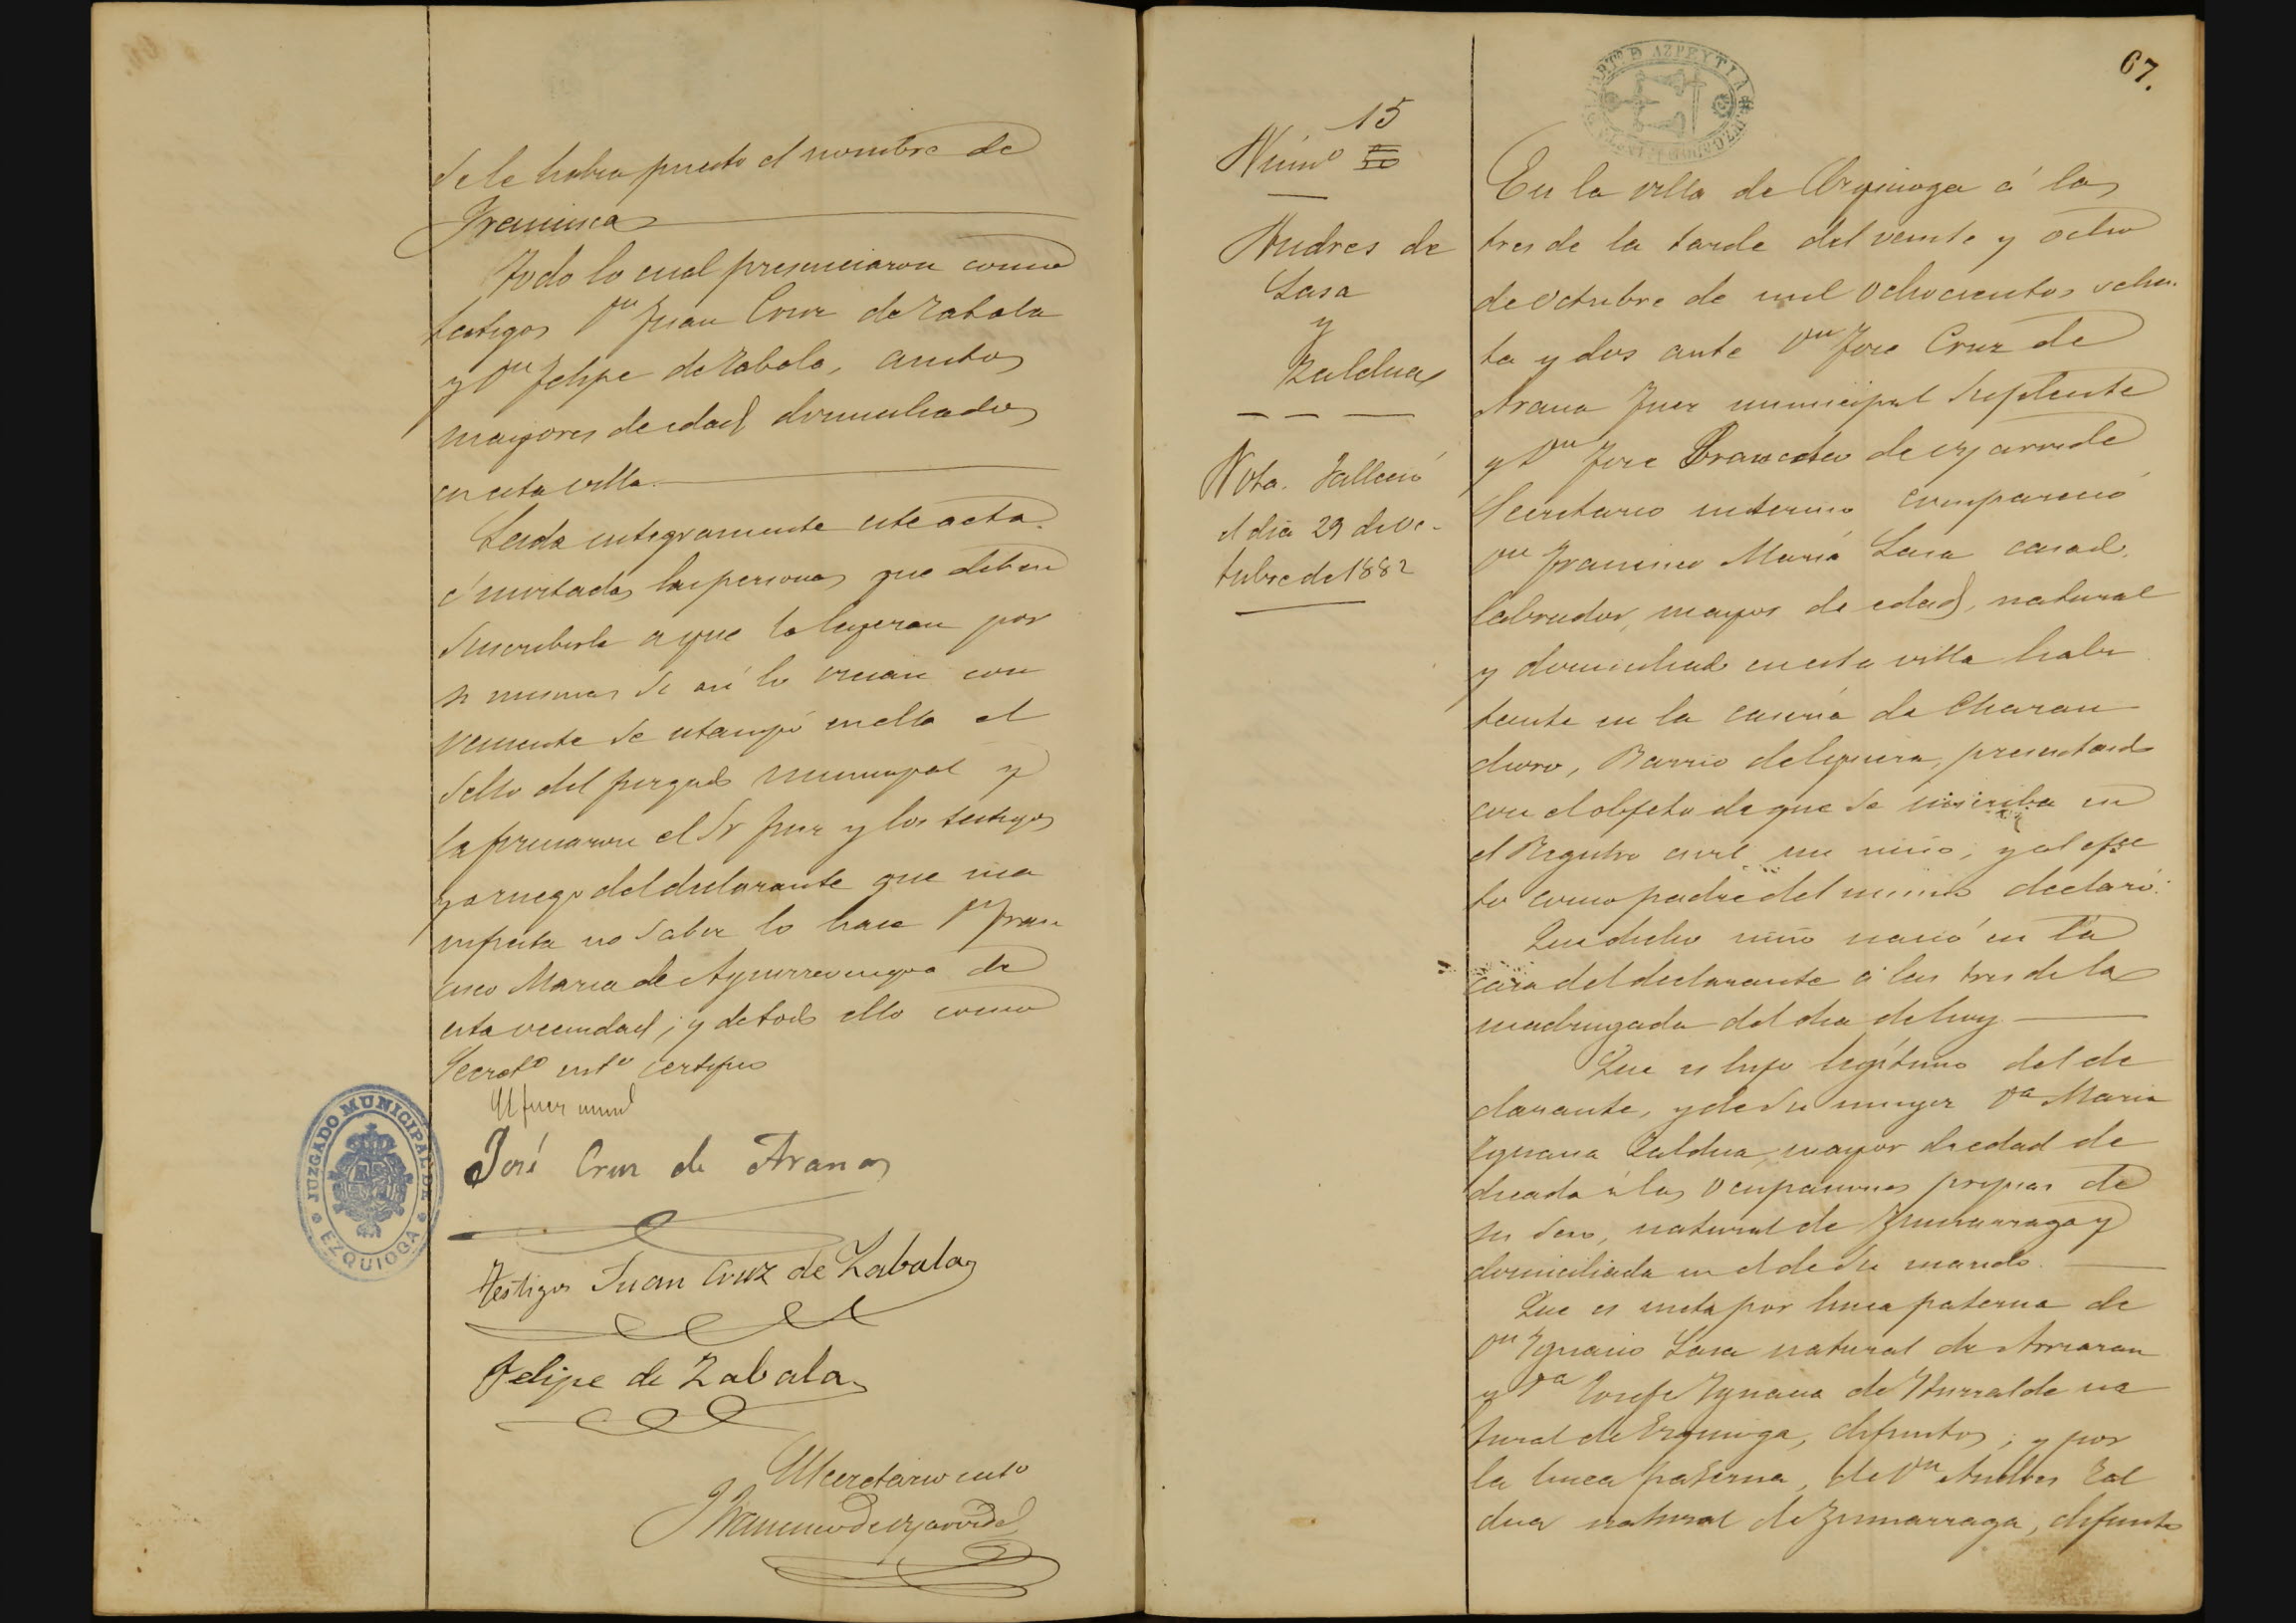 se le habia puesto el nombre de
Francisca
Todo lo cual presenciaron como
testigos Dn Juan Cruz de Zabala
y Dn Felipe de Zabala, ambos
mayores de edad domiciliados
en esta villa.
Leida integramente este acta
é invitadas las personas que deben
suscribirla a que la leyeran por
si mismas si así lo creian con
veniente se estampó en ella el
sello del juzgado municipal y
la firmaron el Sr Juez y los testigos
y a ruego del declarante que ma
nifiesta no saber lo hace Dn Fran
cisco Maria de
esta vecindad; y de todo ello como
Secretº intº certifico
El juez munl
José Cruz de Arana
Testigos Juan Cruz de Zabala
Felipe de Zabala
El Secretario intº
JUZGADO MUNICIPAL DE
EZQUIOGA
67.
PARTº D AZPEYTIA
15
Númº
Andres de
Lasa
y
Zaldua
Nota. Falleció
el dia 29 de Oc-
tubre de 1882
En la villa de Ezquioga á las
tres de la tarde del veinte y ocho
de Octubre de mil ochocientos ochen-
ta y dos ante Dn Jose Cruz de
Arana Juez municipal Suplente
y Dn Jose Francisco de
Secretario interino compareció
Dn Francisco María Lasa casado,
labrador, mayor de edad, natural
y domiciliado en esta villa habi
tante en la caseria de
Barrio de presentando
con el objeto de que se inscriba en
el Registro civil un niño; y al efec
to como padre del mismo declaró:
Que dicho niño nació en la
casa del declarante á las tres de la
madrugada del dia de hoy
Que es hijo legítimo del de
clarante, y de su muger Da Maria
Ygnacia Zaldua, mayor de edad de
dicada á las ocupaciones propias de
su sexo, natural de Zumarraga y
domiciliada en el de su marido.
Que es nieto por linea paterna de
Dn Ygnacio Lasa natural de Arriaran
y Da Josefa Ygnacia de Yturralde na
tural de Ezquioga, difuntos; y por
la linea materna, de Dn Andres Zal
dua natural de Zumarraga, difunto